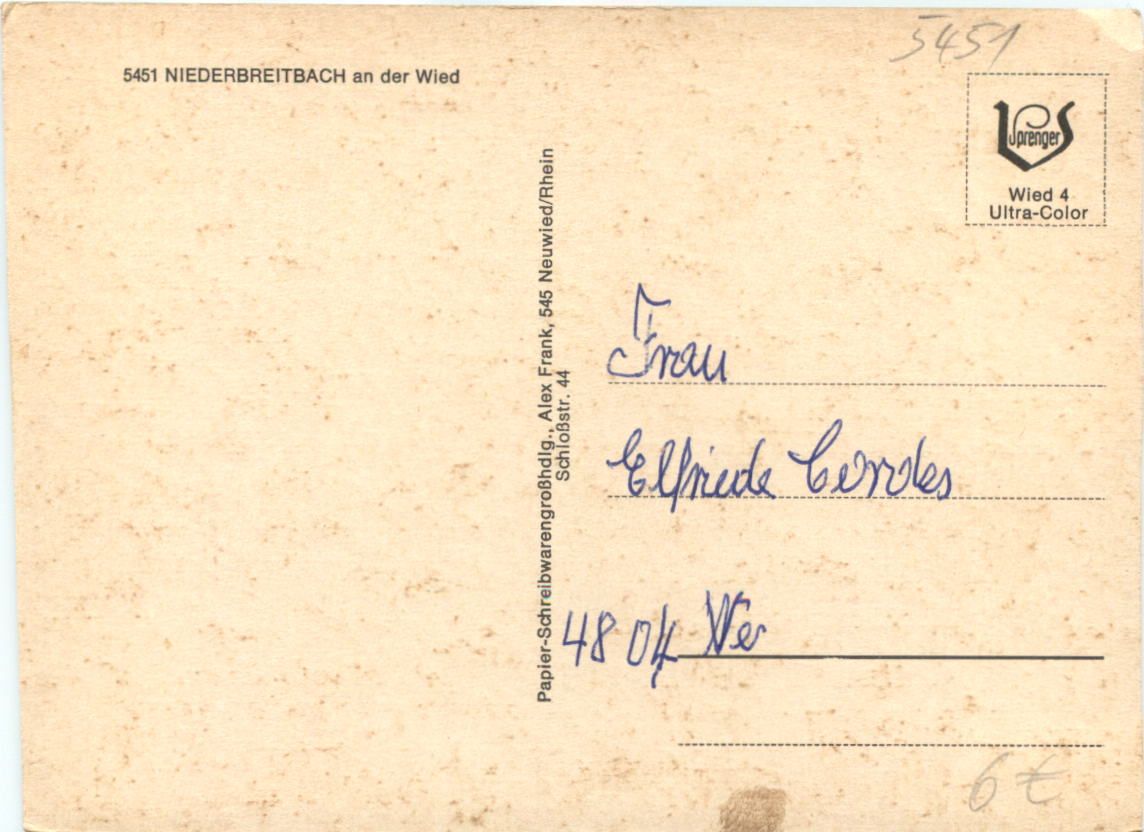 5451
5451 NIEDERBREITBACH an der Wied
Sprenger
Wied 4
Ultra-Color
Papier-Schreibwarengroßhdlg., Alex Frank, 545 Neuwied/Rhein
Schloßstr. 44
Frau
Elfriede Cordes
4804 We
6 €